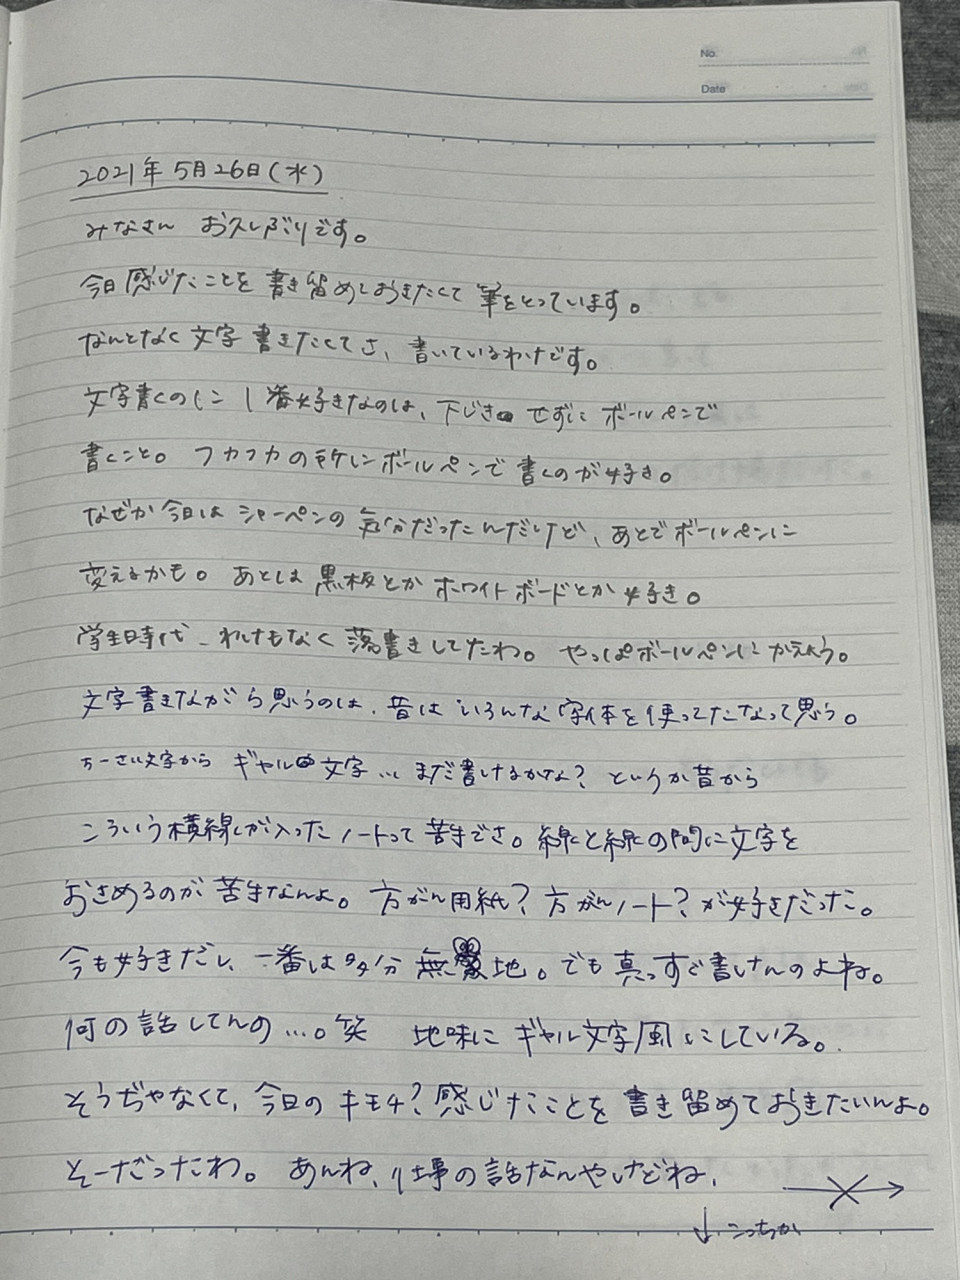 No.
Date
2021年5月26日(水)
みなさん お久しぶりです。
今日感じたことを書き留めておきたくて筆をとっています。
なんとなく文字書きたくてさ、書いているわけです。
文字書くのに1番好きなのは、下じきせずにボールペンで
書くこと。フカフカの所にボールペンで書くのが好き。
なぜか今日はシャーペンの気分だったんだけど、あとでボールペンに
変えるかも。あとは黒板とかホワイトボードとか好き。
学生時代、わけもなく落書きしてたわ。やっぱボールペンにかえよう。
文字書きながら思うのは、昔はいろんな字体を使ってたなって思う。
ちーさい文字から ギャル文字… まだ書けるかな?というか昔から
こういう横線が入ったノートって苦手でさ。線と線の間に文字を
おさめるのが苦手なんよ。方がん用紙?方がんノート?が好きだった。
今も好きだし、一番は多分無地。でも真っすぐ書けんのよね。
何の話してんの…。笑 地味にギャル文字風にしている。
そうぢゃなくて、今日のキモチ?感じたことを書き留めておきたいんよ。
そーだったわ。あんね、仕事の話なんやけどね、
↓こっちか